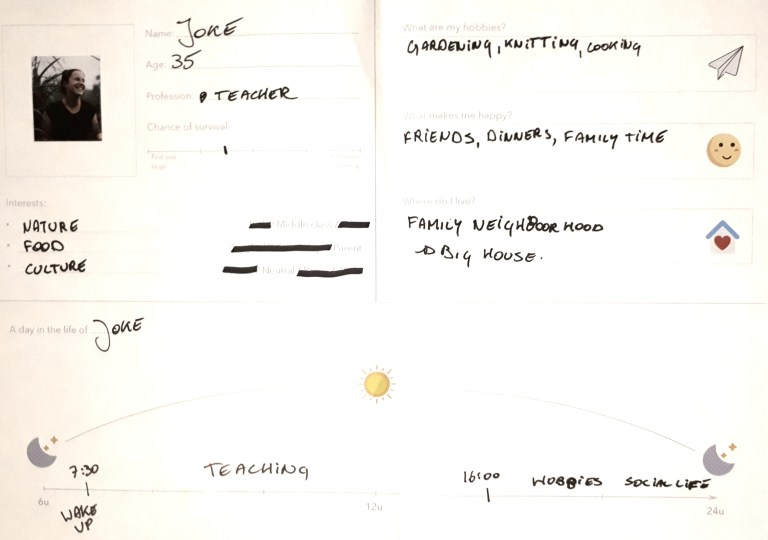 Name: JOKE
Age: 35
Profession: TEACHER
Chance of survival:
Interests:
• NATURE
• FOOD
• CULTURE
Middle class
Parent
Neutral
What are my hobbies?
GARDENING, KNITTING, COOKING
What makes me happy?
FRIENDS, DINNERS, FAMILY TIME
Where do I live?
FAMILY NEIGHBOORHOOD
→ BIG HOUSE.
A day in the life of JOKE
7:30 TEACHING 16:00 HOBBIES SOCIAL LIFE
6u 12u 24u
WAKE
UP